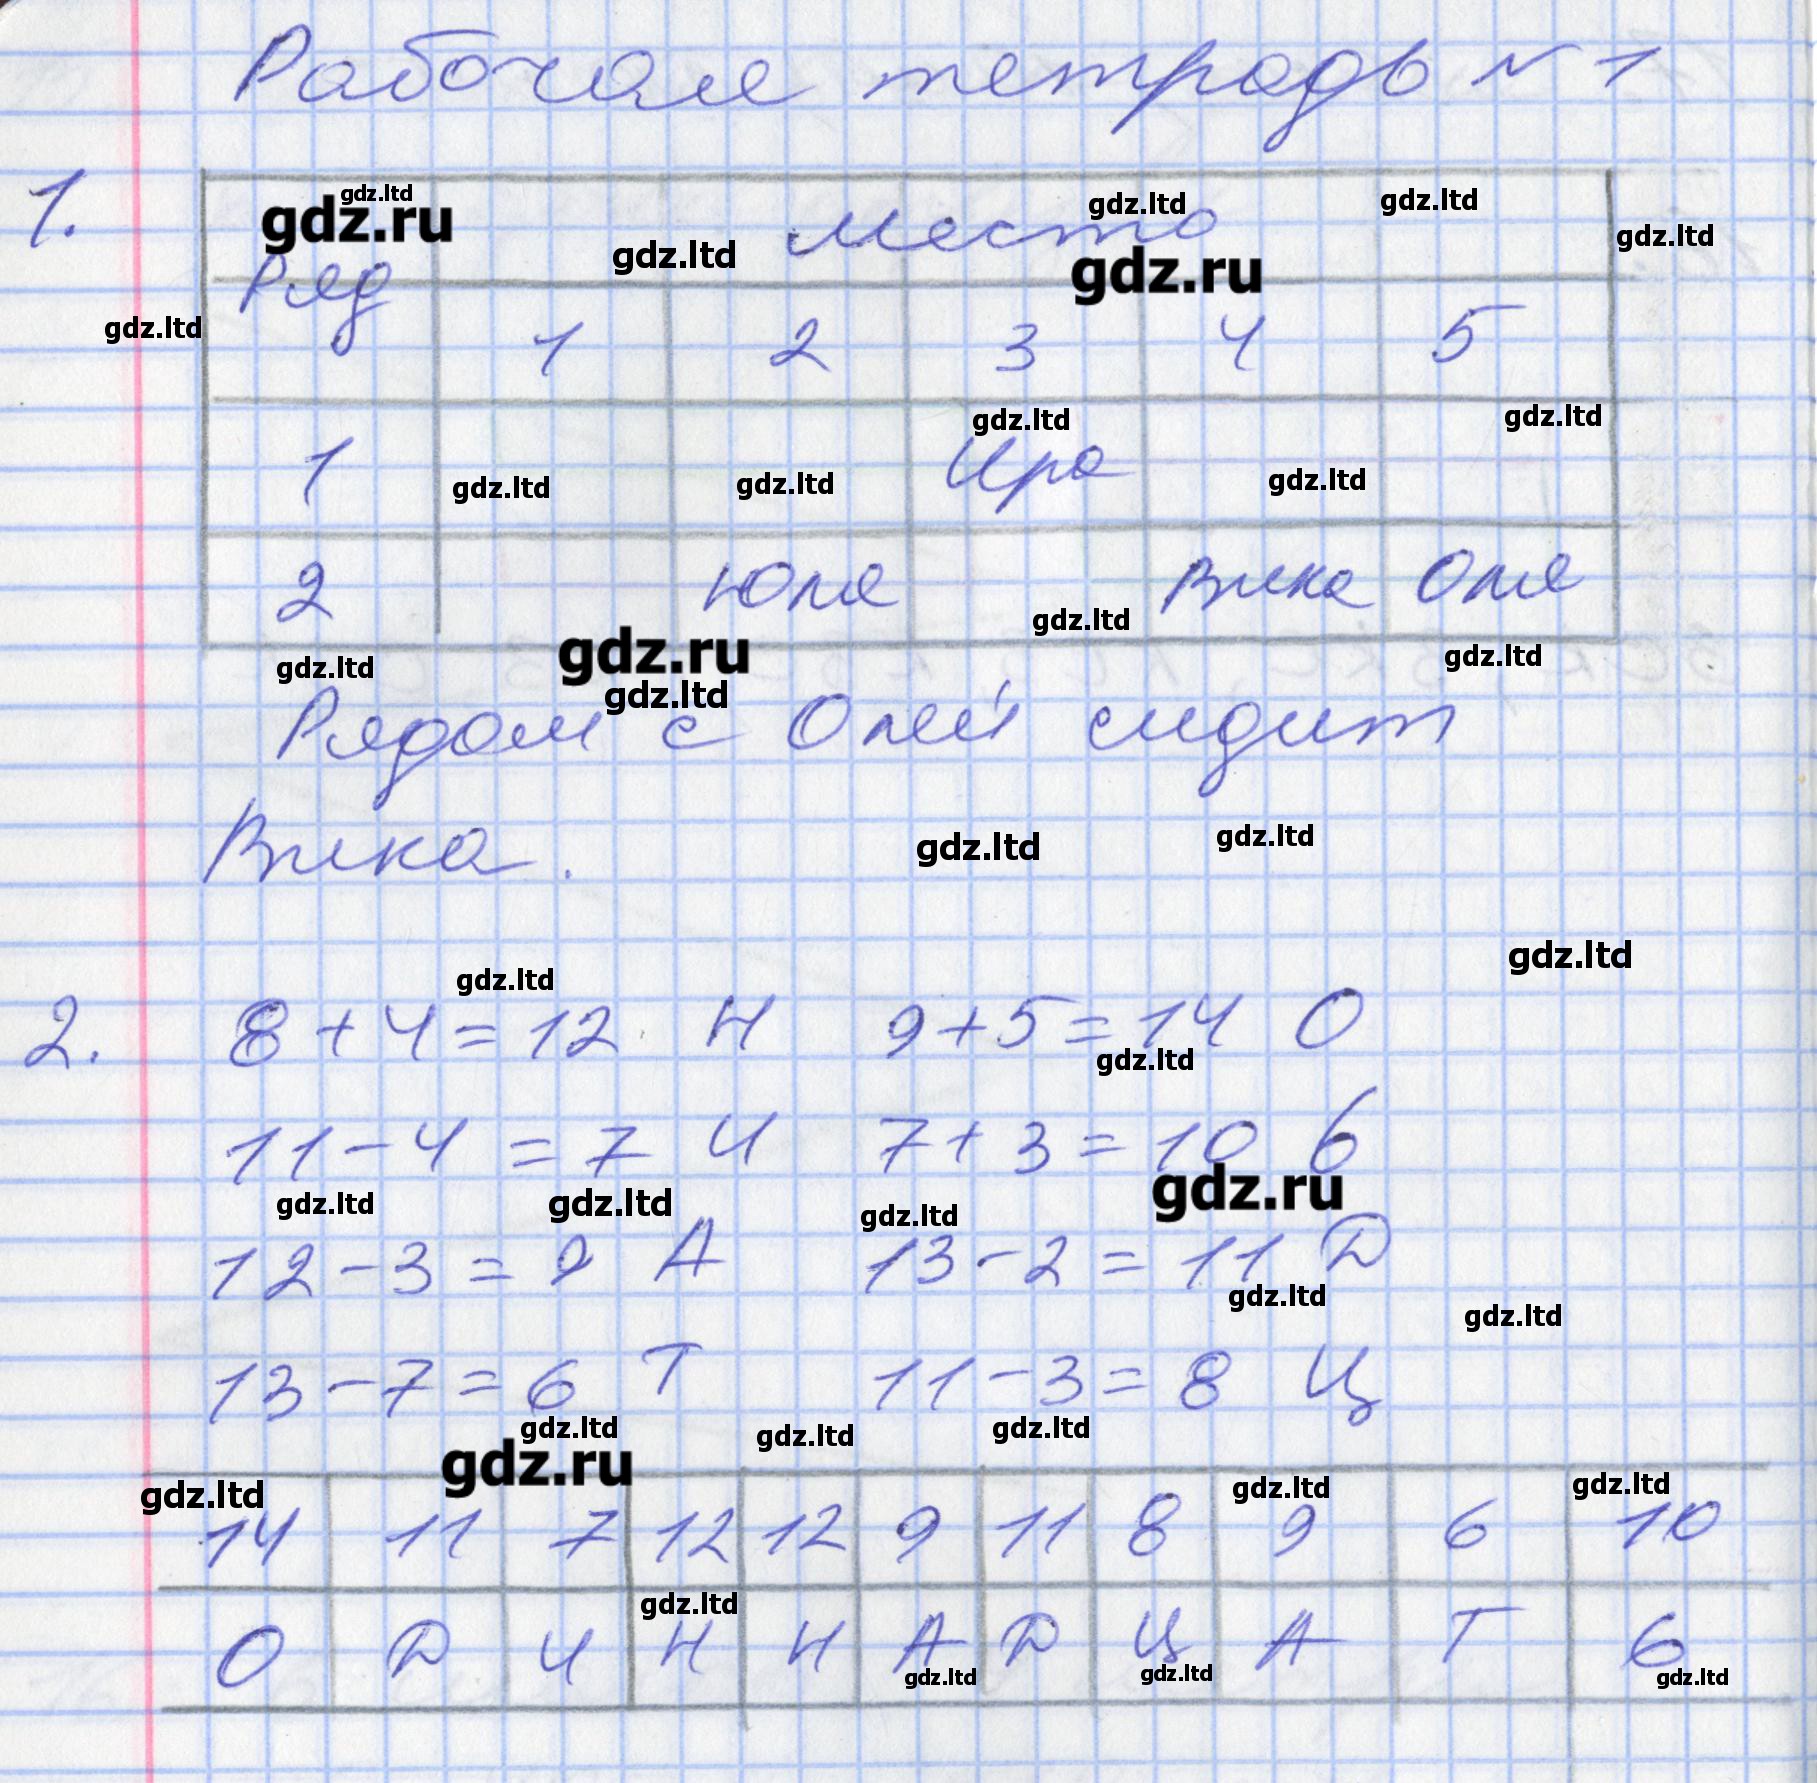 Рабочая тетрадь № 1
1.
Ряд место
1 2 3 4 5
1 Ира
2 Юля Вика Оля
Рядом с Олей сидит
Вика.
2. 8+4=12 Н 9+5=14 О
11-4=7 И 7+3=10 Ь
12-3=9 А 13-2=11 Д
13-7=6 Т 11-3=8 Ц
14 11 7 12 12 9 11 8 9 6 10
О Д И Н Н А Д Ц А Т Ь
gdz.ru
gdz.ltd